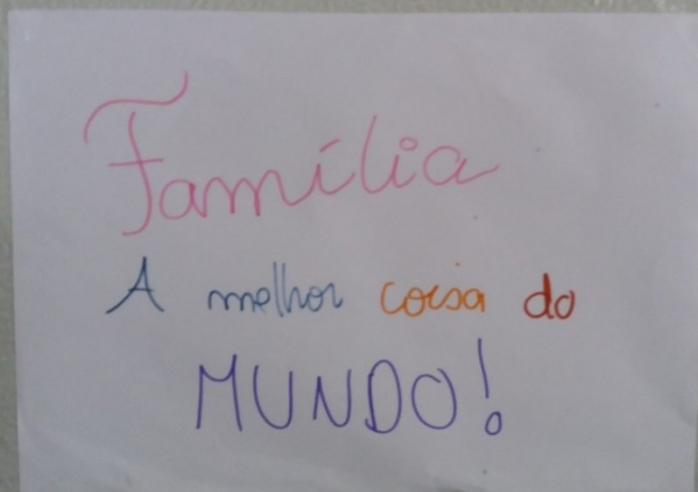 Família
A melhor coisa do
MUNDO!